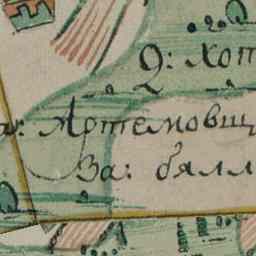 Д: Хот
ь: Артемовщ
За: бялл